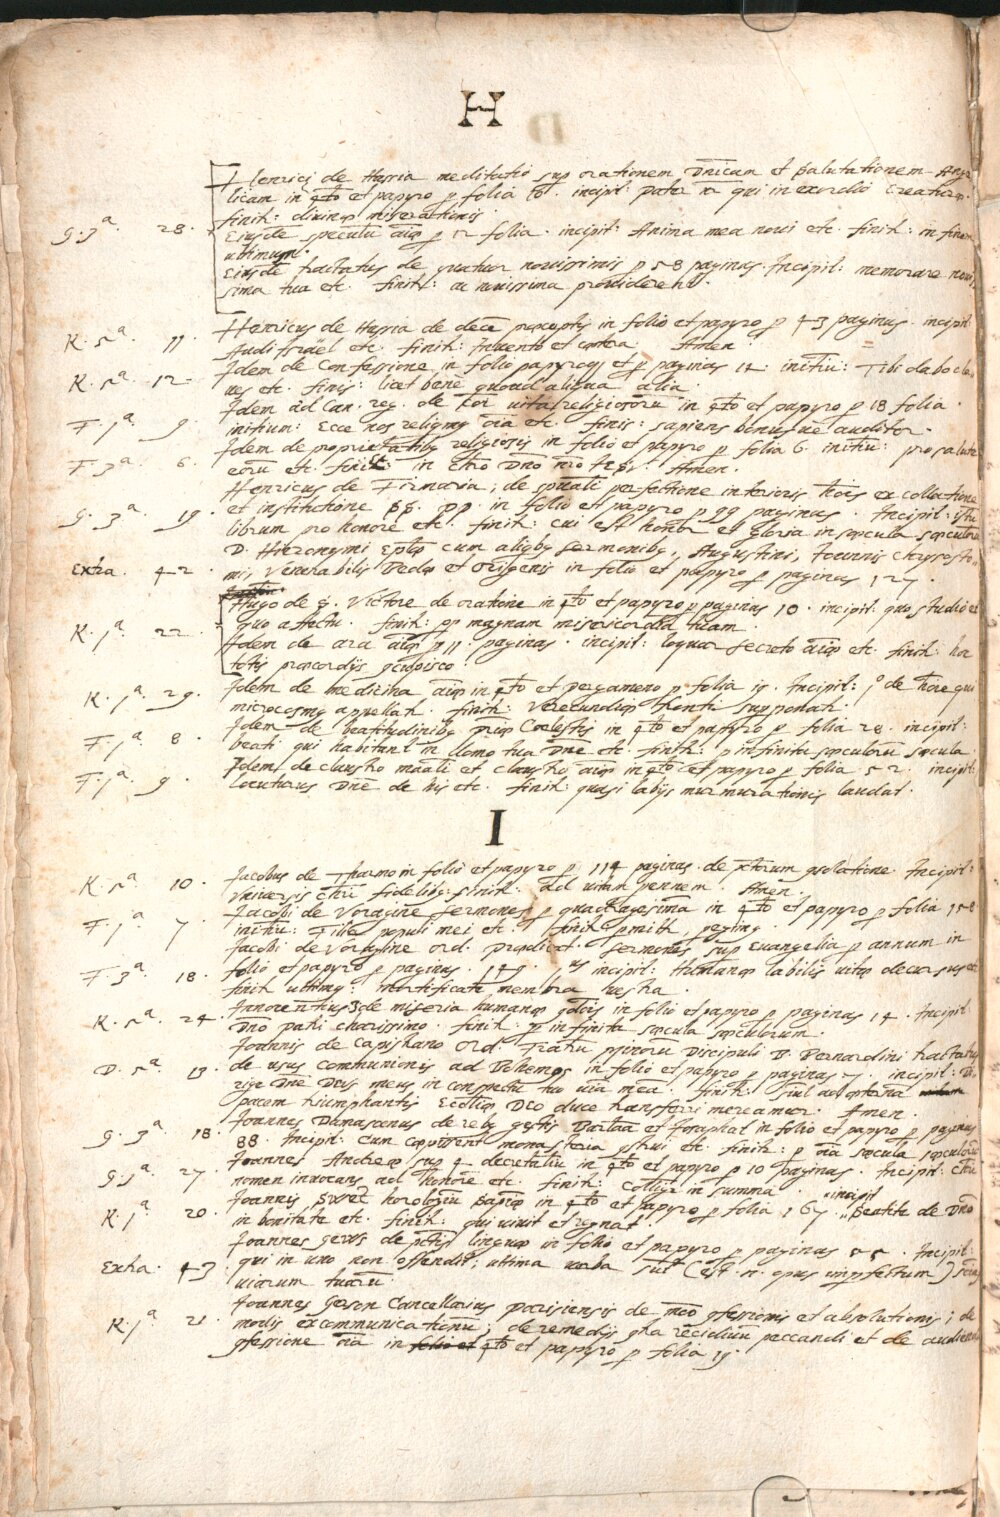 H
Henrici de Hassia meditatio sup orationem Dnicam et Salutationem Ange
licam in 4to et papyro p folia incipit: pater nr qui in exordio creaturæ.
finit: divinæ miserationis.
G. 3a. 28. Eiusdē speculū aīæ p 12 folia. incipit: Anima mea novi etc. finit: in finem
ultimum.
Eiusdē tractatus de quatuor novissimis p 58 paginas. Incipit: memorare novis
sima tua etc. finit: ac novissima providerent.
K. 5a. 11. Henricus de Hassia de decē præceptis in folio et papyro p 43 paginas. incipit
Audi Israël etc. finit: Amen.
K. 5a. 12. Idem de Confessione in folio papyro et p paginas 14 initiū: Tibi dabo cla,
ves etc. finis: licet bene quoad aliqua alia.
F. 1a. 9. Idem ad Can. reg. de vita religiosorū in 4to et papyro p 18 folia.
initium: Ecce nos religimus oīa etc. finis: sapiens benigne auditor.
F. 3a. 6. Idem de proprietatibus religiosis in folio et papyro p folia 6. initiū: pro salute
eorū etc. finit: in Dno nro Amen.
Henricus de Firmaria, de spuali perfectione interioris hoīs ex collatione
G. 3a. 19. et institutione pp. in folio et papyro p 99 paginas. Incipit: istū
librum pro honore etc. finit: cui est honor et gloria in sæcula sæculorū
D. Hieronymi Eplæ cum aliqbus sermonibus, Augustini, Joannis Chrysosto,,
Extra. 42. mi, Venerabilis Bedæ et Origenis in folio et papyro p paginas 127.
Hugo de S. Victore de oratione in 4to et papyro p paginas 10. incipit: quo studio et
K. 1a. 22. quo affectu. finit: magnam misericordiā tuam.
Idem de ara aīæ p 11 paginas. incipit: loquar secreto aīæ etc. finit: ha
totis præcordijs gcupisco.
K. 1a. 29. Idem de medicina aīæ in 4to et pergameno p folia 19. Incipit: 1o de hoīe qui
microcosmus appellatr. finit: verecundiæ fronti supponatr.
F. 1a. 8. Idem de beatitudinibus Coelestis in 4to et papyro p folia 28. incipit:
beati qui habitant in domo tua Dne etc. finit: p infinita sæculorū sæcula
F. 1a. 9. Idem de claustro maāli et claustro aīæ in 4to et papyro p folia 52. incipit:
locuturus Dne de his etc. finit: quasi labijs murmurationis laudat.
I
K. 5a. 10. Jacobus de Tharmo in folio et papyro p 114 paginas de gsolatione. Incipit:
Universis Chri fidelibus. finit: ad vitam pennem. Amen.
F. 1a. 7. Jacobi de Voragine sermones p quadragesima in 4to et papyro p folia 158
initiū: Filia populi mei etc. finit
Jacobi de Voragine ord. prædicat. sermones sup Evangelia p annum in
F. 3a. 18. folio et papyro p paginas. 149. incipit: Humanæ labilis vitæ decursus etc
finit ultimus: mortificate membra vestra.
K. 5a. 24. Innocentius 3 de miseria humanæ gditiōis in folio et papyro p paginas 14. Incipit:
Dno patri charissimo. finit: p infinita sæcula sæculorum.
Joannis de Capistrano Ord: Fratrū Minorū Discipuli D. Bernardini tractatus
D. 5a. 13. de usus communionis ad Bohemos in folio et papyro p paginas 7. incipit: Di,
rige Dne Deus meus in conspectu tuo viā meā. finit: sicut ad æterna
pacem triumphantis Ecclīæ Deo duce transferri mereamur. Amen.
G. 3a. 18. Joannes Damascenus de rebus gestis Barlaā et Josaphat in folio et papyro p paginas
88. Incipit: Cum cæpissent monasteria gstrui etc. finit: p oīa sæcula sæculorū
G. 5a. 27. Joannes Andreæ sup 4 decretaliū in 4to et papyro p 10 paginas. Incipit: Chri
nomen invocans ad honorē etc. finit: colligitr in summa.
K. 1a. 20. Joannis horologiū Sapiæ in 4to et papyro p folia 167 "incipit "Sentite de Dno
in bonitate etc. finit: qui vivit et regnat.
Joannes Gers de gtis linguæ in folio et papyro p paginas 55. Incipit:
Extra. 43. qui in uno non offendit; ultima verba sūt (est n. opus imperfectum) scien
viarum tuarū.
Joannes Gerson Cancellarius parisiensis de gfessionis et absolutionis; de
K. 1a. 21. modis excommunicationū; de remedijs gtra recidivū peccandi et de audienda
gfessione oīa in folio et 4to et papyro p folia 19.